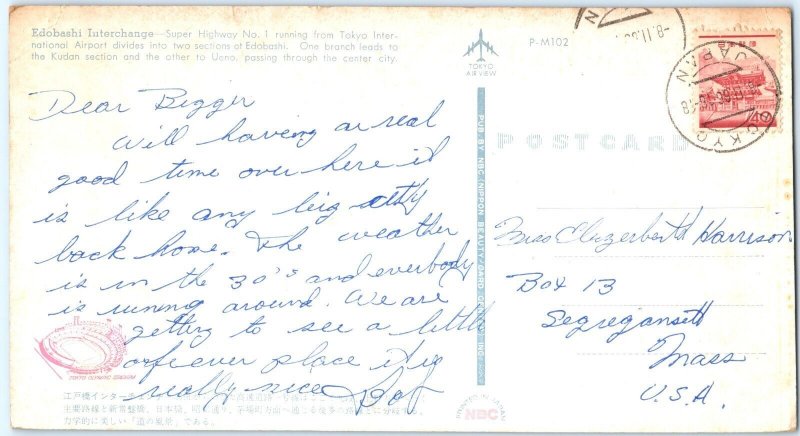 Edobashi Interchange—Super Highway No. 1 running from Tokyo Inter-
national Airport divides into two sections at Edobashi. One branch leads to
the Kudan section and the other to Ueno, passing through the center city.
TOKYO
AIRVIEW
P-M102
JAPAN
TOKYO
40
POST CARD
PUB. BY NBC (NIPPON BEAUTY/CARD
Dear Bigger
Will having a real
good time over here it
is like any big city
back home. The weather
is in the 30's and everbody
is runing around. We are
getting to see a little
of ever place it is
really nice
Miss Elizerberth Harrison
Box 13
Segregansett
Mass
U.S.A.
TOKYO OLYMPIC STADIUM
江戸橋インターチ
主要路線と新常盤橋、日本橋、昭和通り、茅場町方面へ通じる
力学的に美しい「道の風景」である。
PRINTED IN JAPAN
NBC